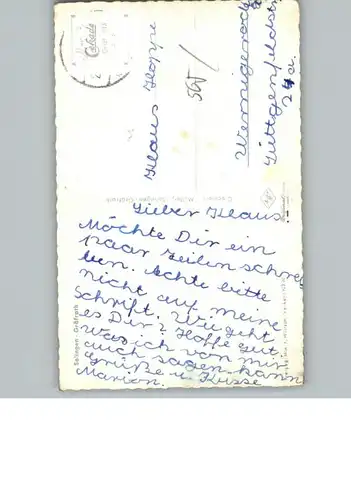 Klaus Hoppe
Wernigerode
24 a.
Lieber Klaus!
Möchte Dir ein
paar Zeilen schrei
ben. Achte bitte
nicht auf meine
Schrift. Wie geht
es Dir? Hoffe gut,
was ich von mir
auch sagen kann
Grüße u. Küsse
Marion.
Solingen-Gräfrath